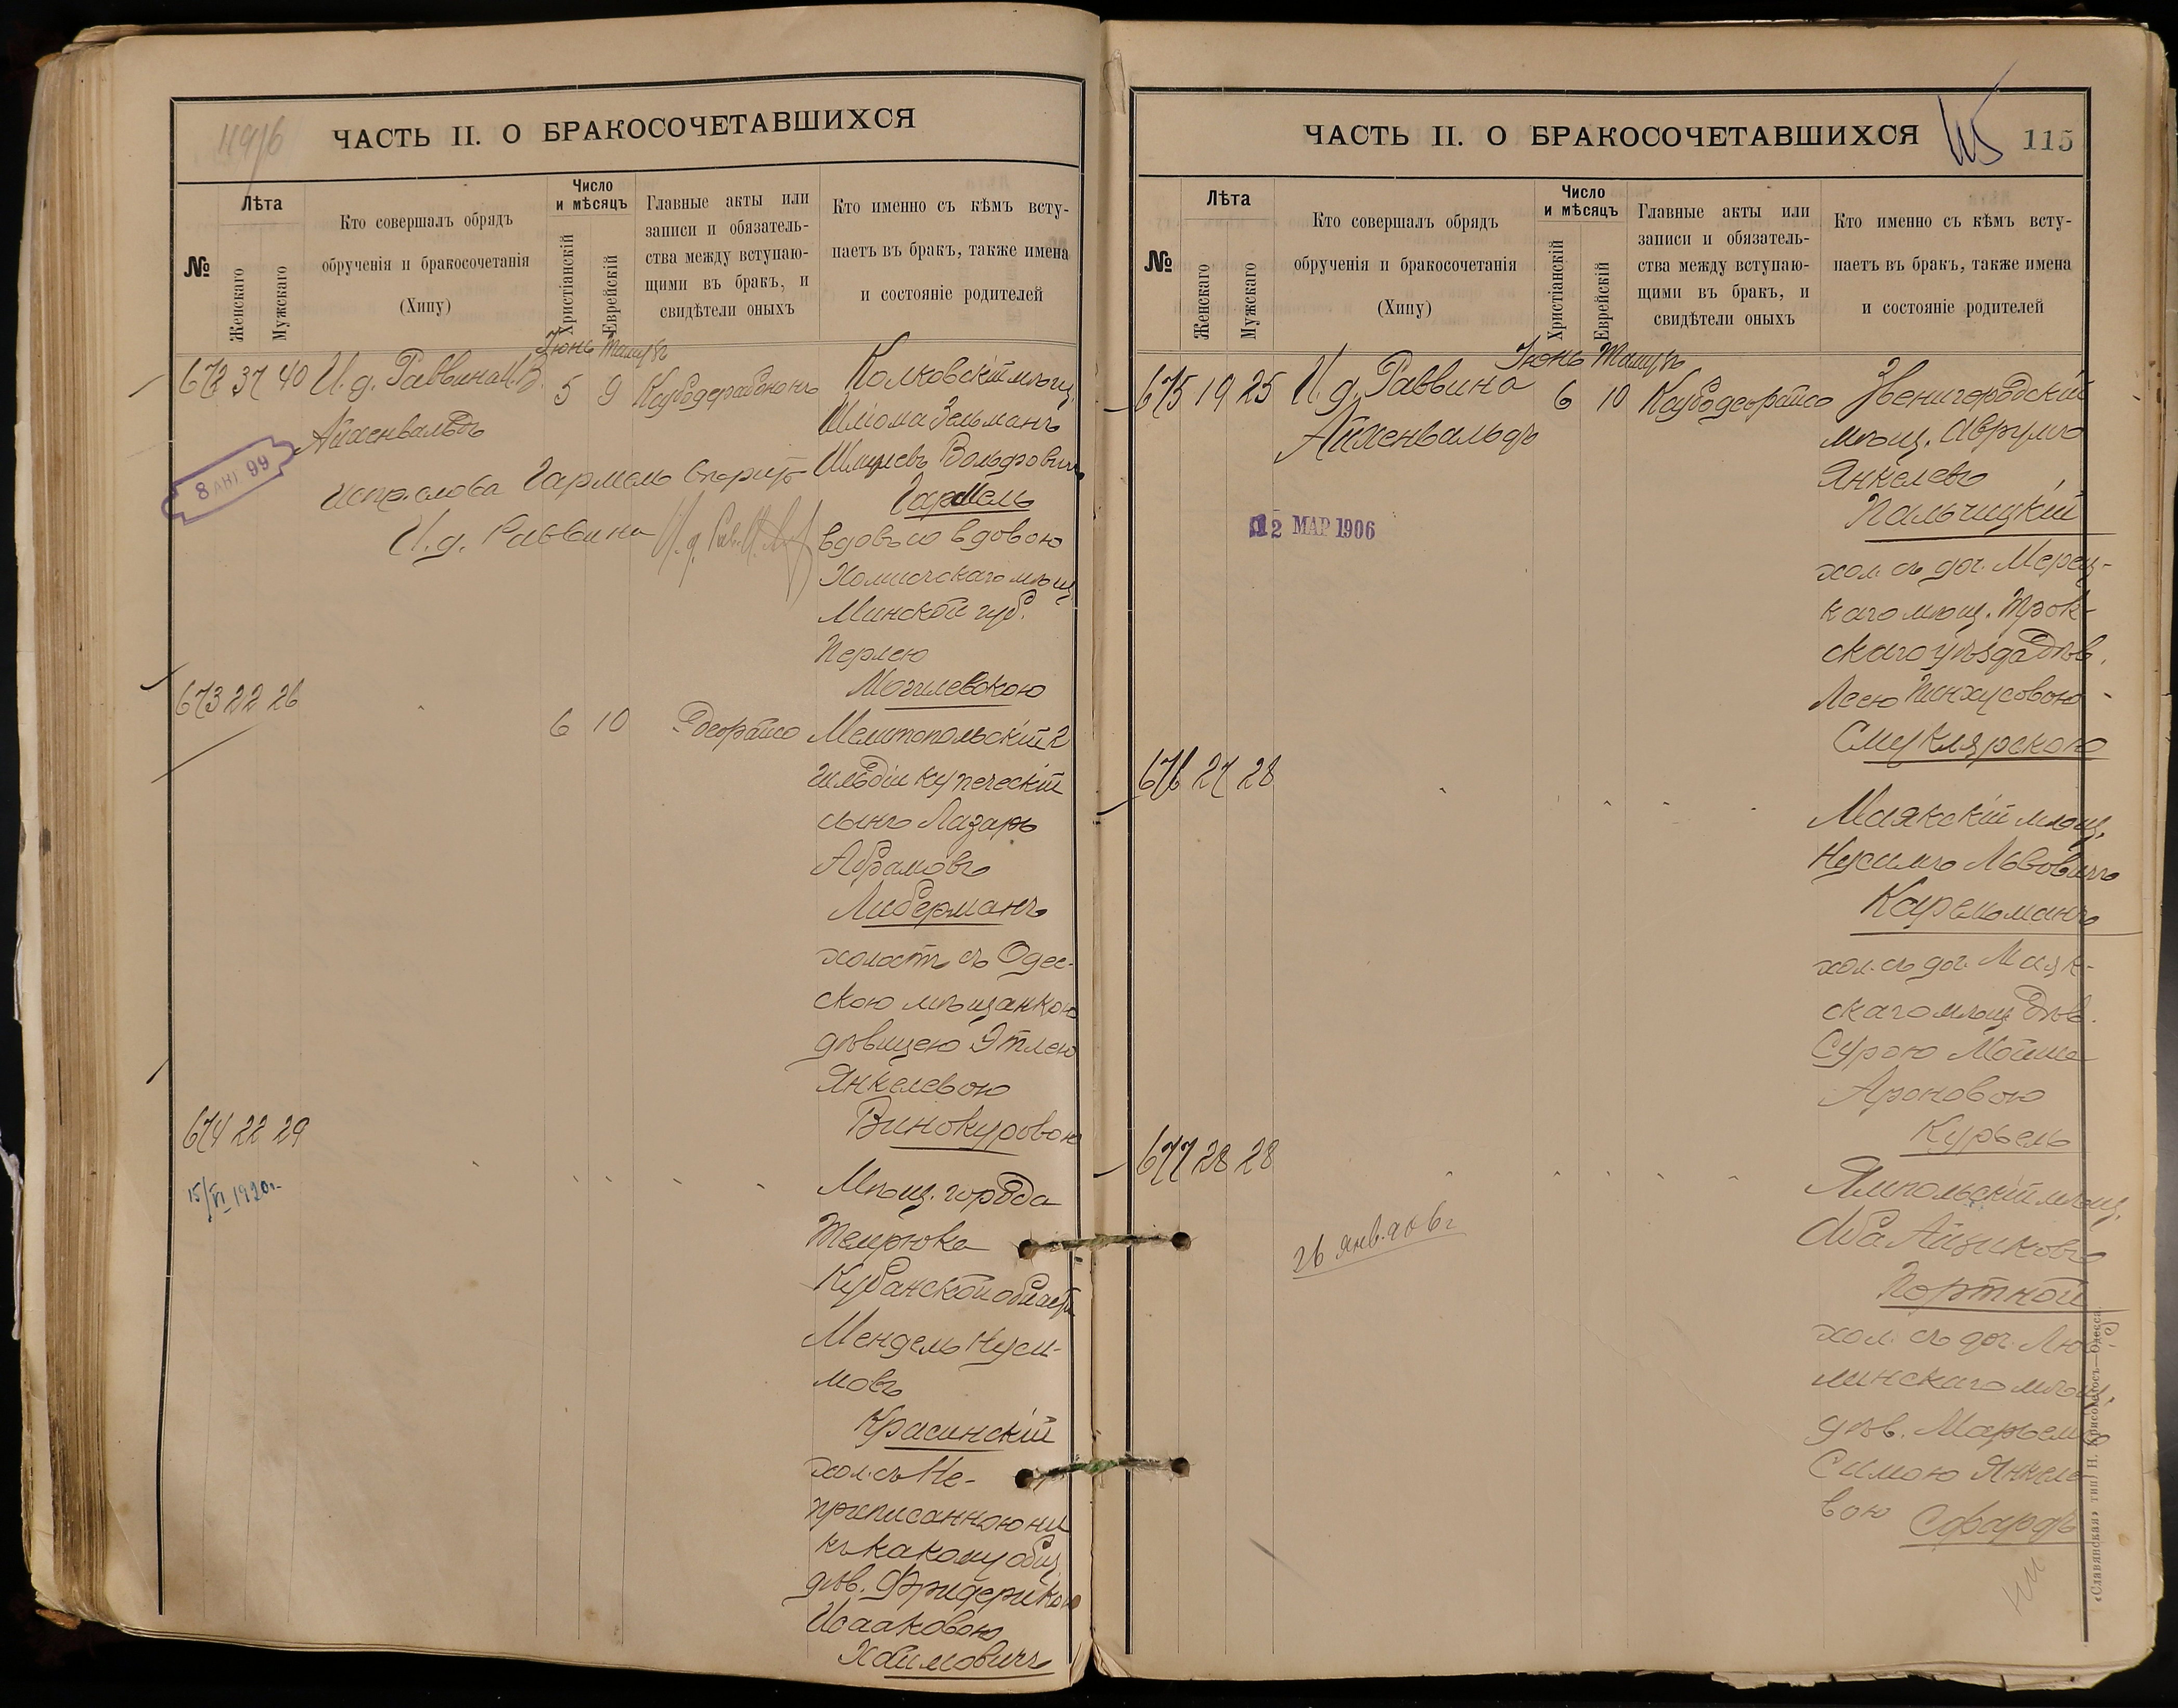 ЧАСТЬ II. О БРАКОСОЧЕТАВШИХСЯ
№
Лѣта
Женскаго
Мужскаго
Кто совершалъ обрядъ
обрученія и бракосочетанія
(Хипу)
Число
и мѣсяцъ
Христіанскій
Еврейскій
Главные акты или
записи и обязатель-
ства между вступаю-
щими въ бракъ, и
свидѣтели оныхъ
Кто именно съ кѣмъ всту-
паетъ въ бракъ, также имена
и состояніе родителей
Іюнь
672 37 40 И. д. Раввина
5 9
8 АНГ. 99
Колковскій мѣщ.
Шлиома Зельманъ
Вольфовичъ
Гармель
вдовъ со вдовою
мѣщ.
Минской губ.
Перлею
Могилевскою
Испр. слова Гармель
И. д. Раввина
673 22 26
6 10
Мелитопольскій 2
гильдіи купеческій
сынъ Лазарь
Абрамовъ
Либерманъ
холостъ съ Одес-
скою мѣщанкою
дѣвицею Этлею
Янкелевою
Винокуровою
674 22 29
15/VI 1920г.
Мѣщ. города
Темрюка
Кубанской области
Мендель Нуси-
мовъ
Красинскій
хол. съ Не-
приписанною ни
къ какому общ.
дѣв. Фридерикою
Исааковою
Хаимовичъ
ЧАСТЬ II. О БРАКОСОЧЕТАВШИХСЯ
115
115
№
Лѣта
Женскаго
Мужскаго
Кто совершалъ обрядъ
обрученія и бракосочетанія
(Хипу)
Число
и мѣсяцъ
Христіанскій
Еврейскій
Главные акты или
записи и обязатель-
ства между вступаю-
щими въ бракъ, и
свидѣтели оныхъ
Кто именно съ кѣмъ всту-
паетъ въ бракъ, также имена
и состояніе родителей
Іюнь
675 19 25 И. д. Раввина
Айхенвальдъ
6 10
12 МАР 1906
Звенигородскій
мѣщ. Аврумъ
Янкелевъ
Пальчицкій
хол. съ доч. Мерец-
каго мѣщ. Трок-
скаго уѣзда дѣв.
Леею Пинхусовою
Смуклярскою
676 27 28
Маякскій мѣщ.
Нусимъ Львовичъ
хол. съ доч. Маяк-
скаго мѣщ. дѣв.
Сурою Мойше
Ароновою
Курьель
677 28 28
26 янв. 906г
Ямпольскій мѣщ.
Аба Айзиковъ
Портной
хол. съ доч. Лю-
линскаго мѣщ.
дѣв. Марьемъ
Симою Янкеле-
вою Сфардъ
«Славянская» тип. Н. Хрисогелосъ—Одесса.